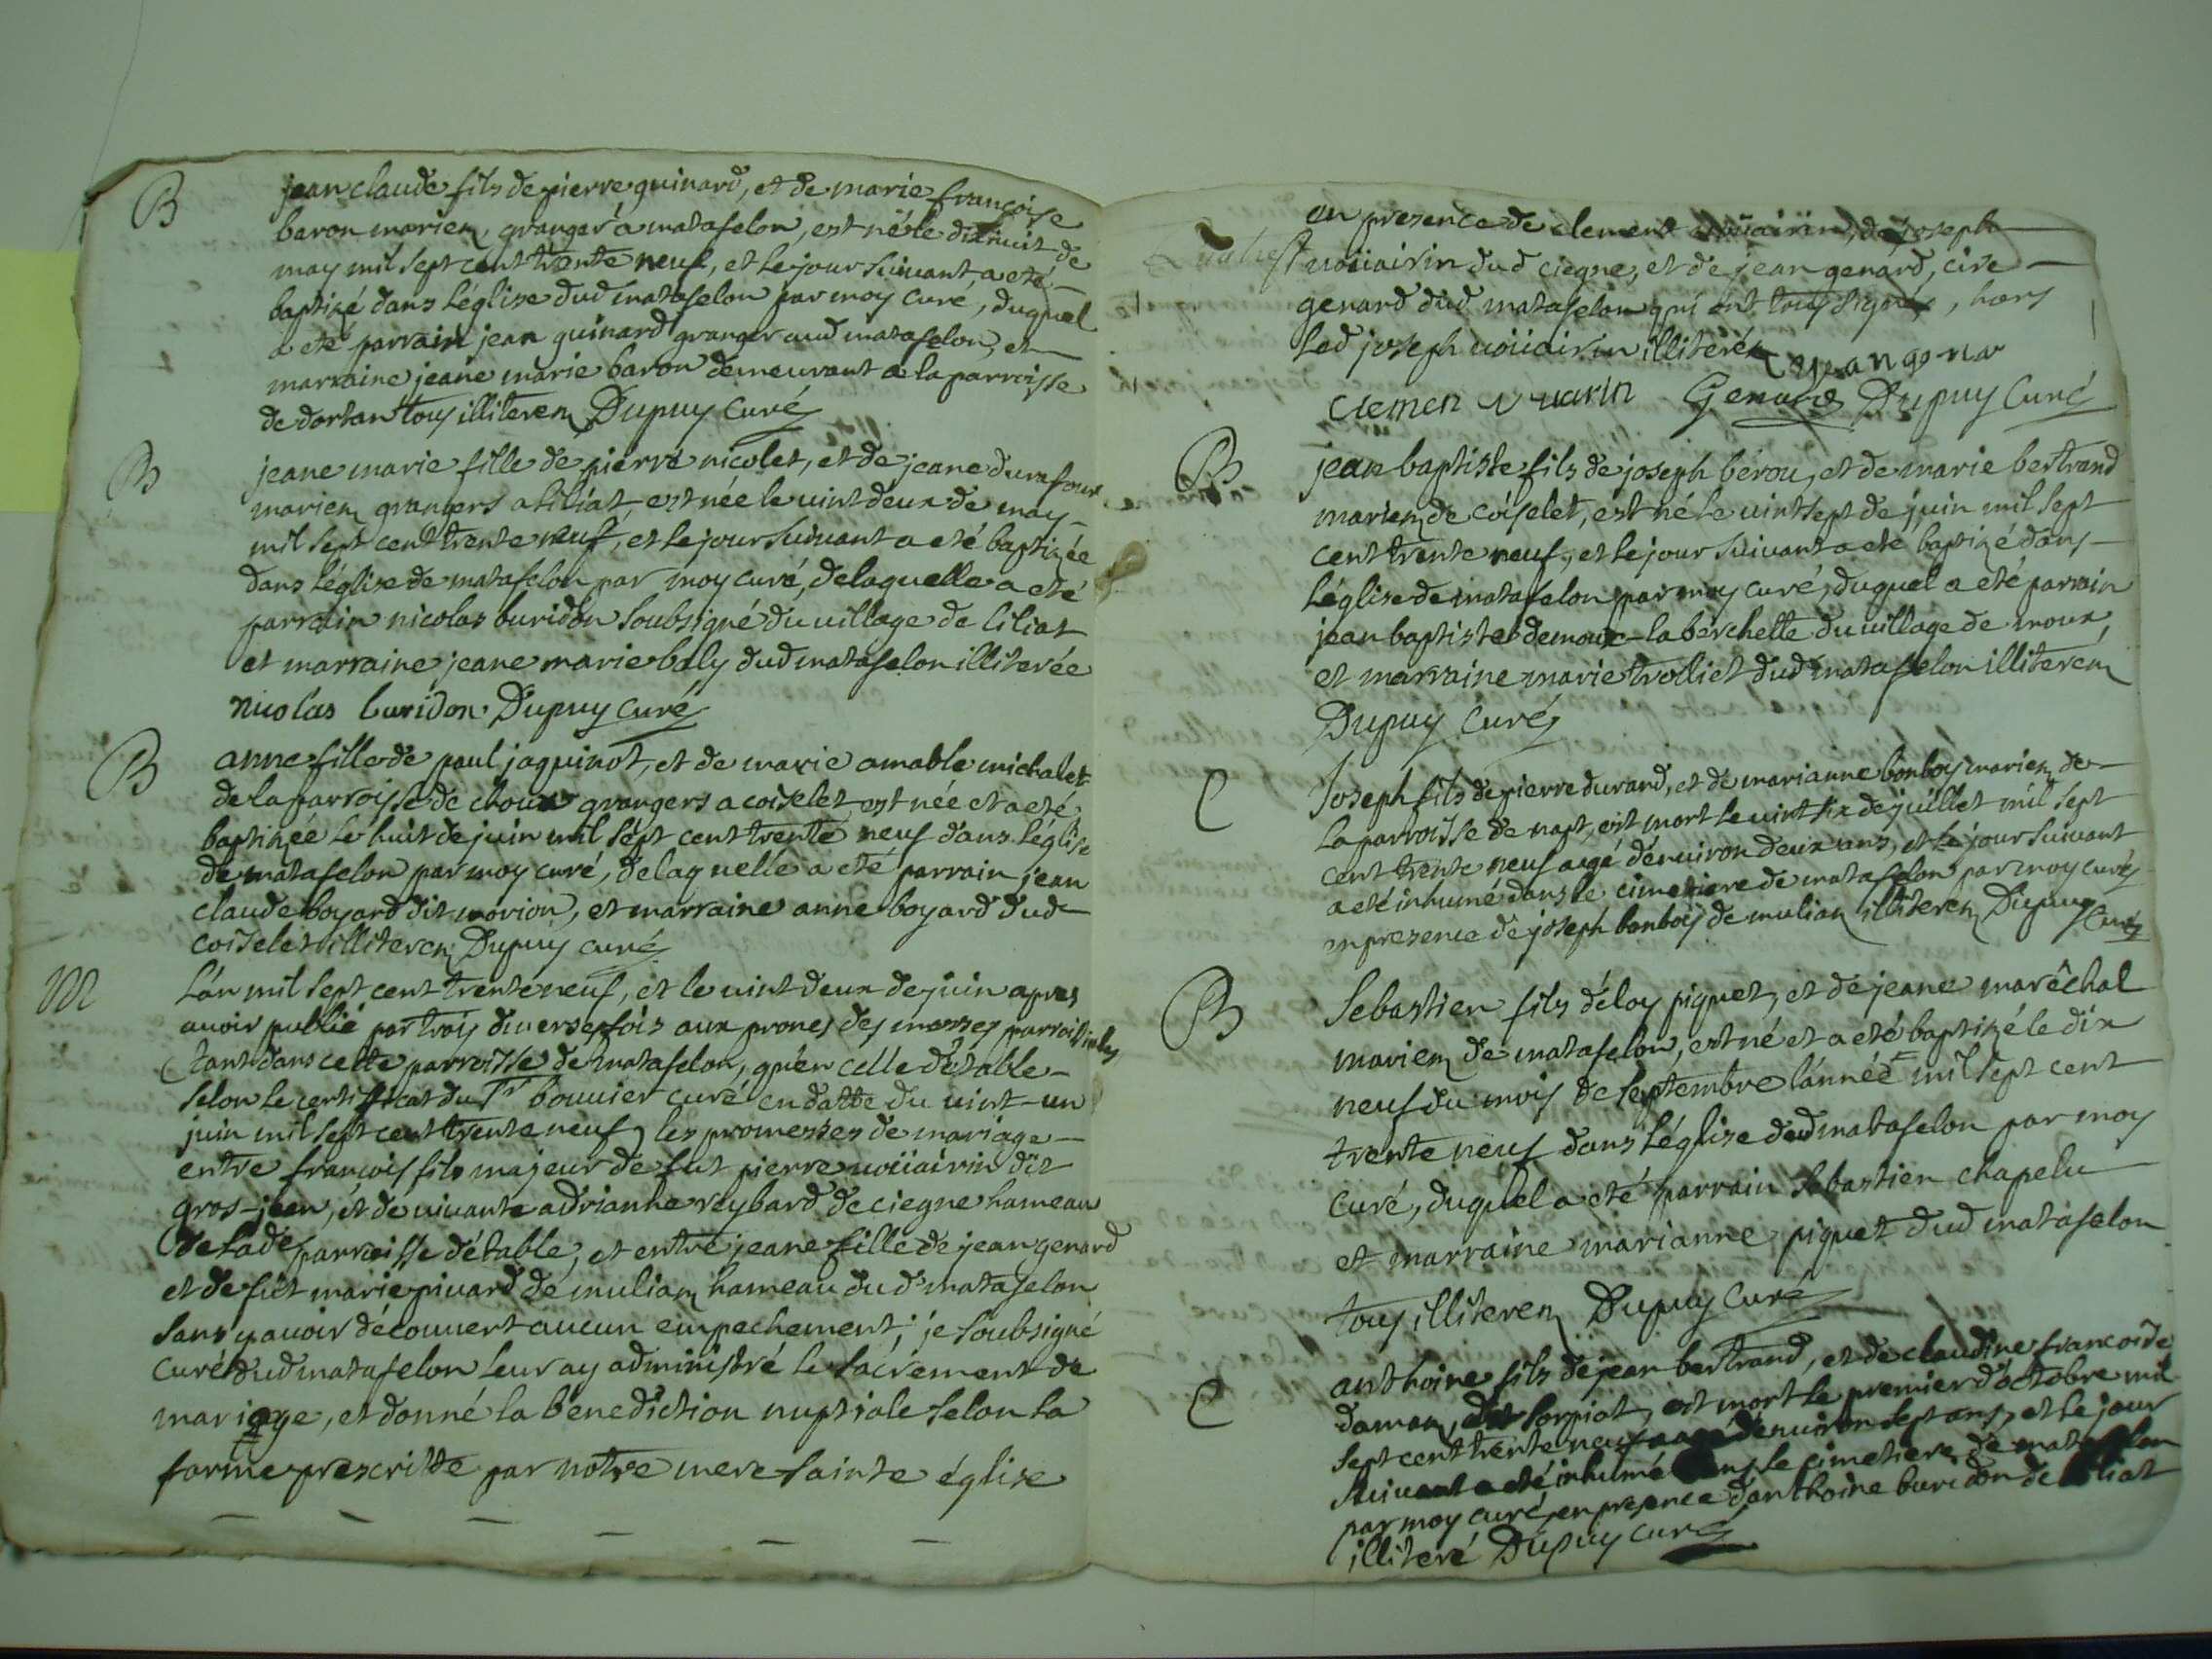 B
jean claude fils de pierre guinard, et de marie françoise
baron mariez, granger a matafelon, est né le dixhuit de
may mil sept cent trente neuf, et le jour suivant a eté
baptizé dans l'église dud matafelon par moy curé, duquel
a eté parrain jean guinard granger aud matafelon, et
marraine jeane marie baron demeurant a la parroisse
de dortan touj illiterez Dupuy curé
B
jeane marie fille de pierre nicolet, et de jeane durafour
mariez grangers a liliat, est née le vint deux de may
mil sept cent trente neuf, et le jour suivant a eté baptizée
dans l'église de matafelon par moy curé, de laquelle a eté
parrain nicolas buridon soubsigné du village de liliat
et marraine jeane marie baly dud matafelon illiterée
nicolas buridon Dupuy curé
B
anne fille de paul jaquinot, et de marie amable michalet
de la parroisse de choux grangers a coiselet est née et a eté
baptizée le huit de juin mil sept cent trente neuf dans l'église
de matafelon par moy curé, de laquelle a eté parrain jean
claude boyard dit morion, et marraine anne boyard dud
coiselet illiterez Dupuy curé
M
L'an mil sept cent trente neuf, et le vint deux de juin apres
avoir publié par trois diverses fois aux prones des messes parroissiales
tant dans cette parroisse de matafelon, qu'en celle d'étable
selon le certificat du Sr bouvier curé en datte du vint-un
juin mil sept cent trente neuf, les promesses de mariage
entre françois fils majeur de fut pierre voüairin dit
gros-jean, et de vivante adrianne reybard de ciegne hameau
de lad parroisse d'étable, et entre jeane fille de jean genard
et de fut marie pivard de mulian hameau dud matafelon
sans y avoir découvert aucun empechement; je soubsigné
curé dud matafelon leur ay administré le sacrement de
mariage, et donné la bénediction nuptiale selon la
forme prescritte par notre mere sainte église
en presence de clement voüairin, de joseph
voüairin dud ciegne, et de jean genard, cire
genard dud matafelon qui ont tous signéz, hors
led joseph voüairin illiteré
clemen vuarin Genard Dupuy Curé
B
jean baptiste fils de joseph bérou, et de marie bertrand
mariez de coiselet, est né le vint sept de juin mil sept
cent trente neuf, et le jour suivant a eté baptizé dans
l'église de matafelon par moy curé, duquel a eté parrain
jean baptiste demoux-la berchette du village de moux
et marraine marie trolliet dud matafelon illiterez
Dupuy Curé
C
Joseph fils de pierre durard, et de marianne bonboy mariez de
la parroisse de napt, est mort le vint six de juillet mil sept
cent trente neuf aagé d'environ deux ans, et le jour suivant
a eté inhumé dans le cimetiere de matafelon par moy curé
en presence de joseph bonboy de mulian illiterez Dupuy
Curé
B
Sebastien fils d'éloy piquet, et de jeane maréchal
mariez de matafelon, est né et a eté baptizé le dix
neuf du mois de septembre l'année mil sept cent
trente neuf dans l'église dud matafelon par moy
curé, duquel a eté parrain Sebastien chapelu
et marraine marianne piquet dud matafelon
touj illiterez Dupuy Curé
C
anthoine fils de jean bertrand, et de claudine francoise
daman, est mort le premier d'octobre mil
sept cent trente neuf aagé d'environ sept ans, et le jour
suivant a eté inhumé dans le cimetiere de matafelon
par moy curé, en presence d'anthoine buridon de liliat
illiteré Dupuy curé